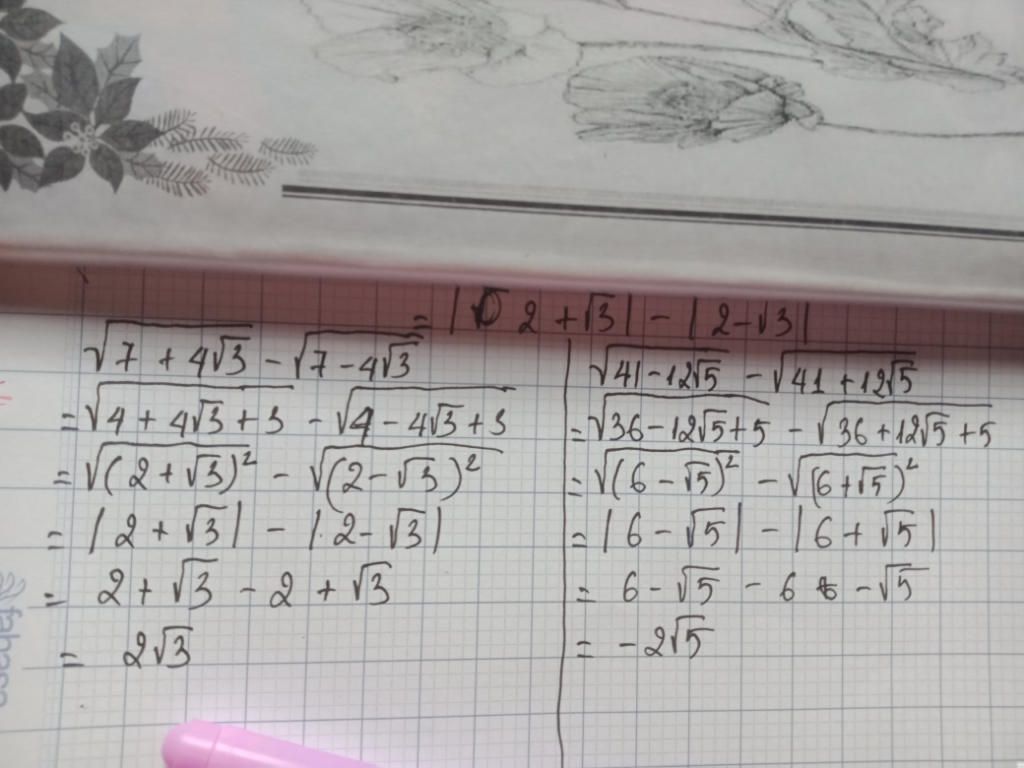 = | 2 + √3 | - | 2 - √3 |
√(7 + 4√3) - √(7 - 4√3)
= √(4 + 4√3 + 3) - √(4 - 4√3 + 3)
= √((2 + √3)²) - √((2 - √3)²)
= | 2 + √3 | - | 2 - √3 |
= 2 + √3 - 2 + √3
= 2√3
√(41 - 12√5) - √(41 + 12√5)
= √(36 - 12√5 + 5) - √(36 + 12√5 + 5)
= √((6 - √5)²) - √((6 + √5)²)
= | 6 - √5 | - | 6 + √5 |
= 6 - √5 - 6 - √5
= -2√5
fahasa